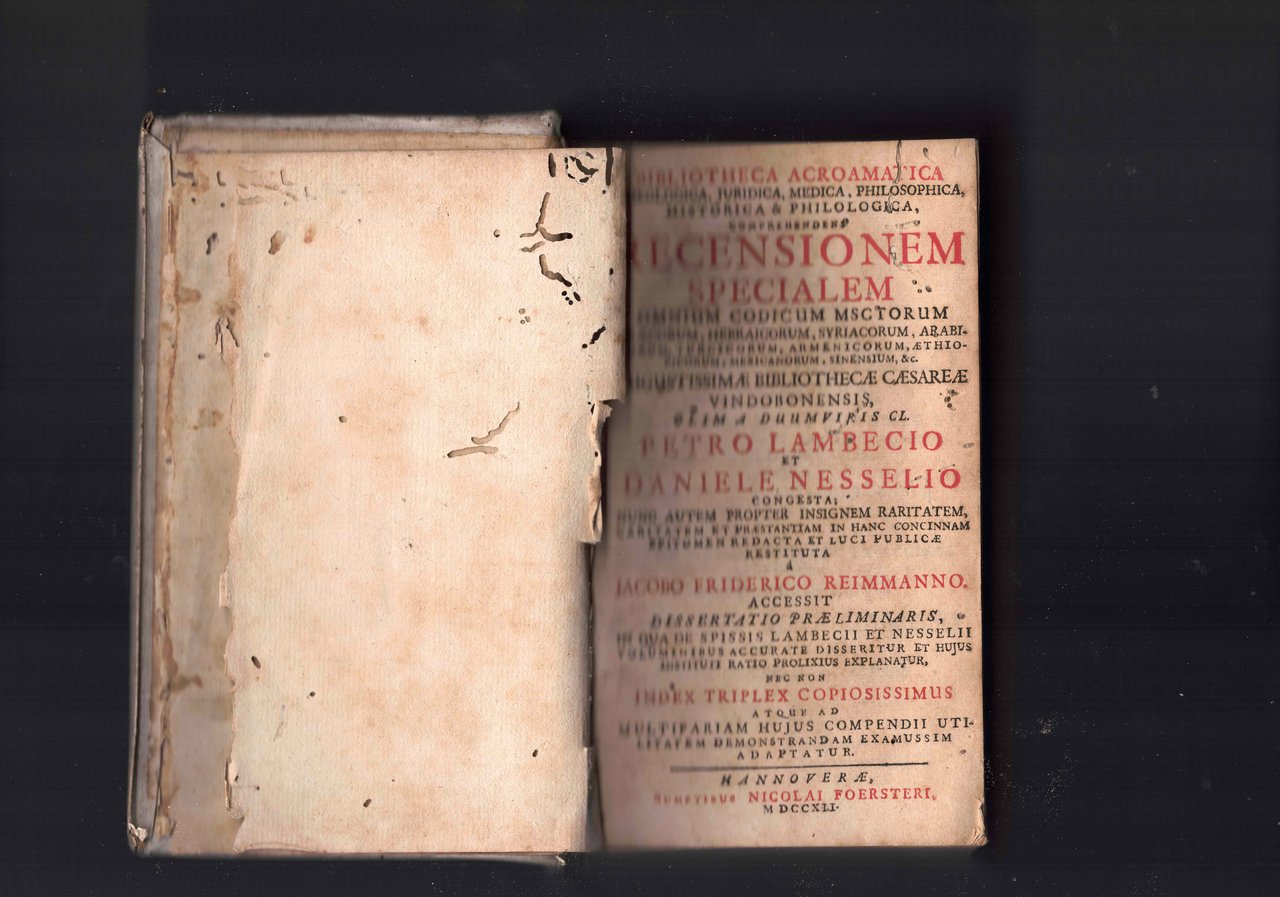 BIBLIOTHECA ACROAMATICA
THEOLOGICA, JURIDICA, MEDICA, PHILOSOPHICA,
HISTORICA & PHILOLOGICA,
COMPREHENDENS
RECENSIONEM
SPECIALEM
OMNIUM CODICUM MSCTORUM
HEBRAICORUM, SYRIACORUM, ARABI-
TURCICORUM, ARMENICORUM, ÆTHIO-
PICORUM, MEXICANORUM, SINENSIUM, &c.
AUGUSTISSIMÆ BIBLIOTHECÆ CÆSAREÆ
VINDOBONENSIS,
OLIM A DUUMVIRIS CL.
PETRO LAMBECIO
ET
DANIELE NESSELIO
CONGESTA;
NUNC AUTEM PROPTER INSIGNEM RARITATEM,
ET PRÆSTANTIAM IN HANC CONCINNAM
EPITOMEN REDACTA ET LUCI PUBLICÆ
RESTITUTA
A
JACOBO FRIDERICO REIMMANNO.
ACCESSIT
DISSERTATIO PRÆLIMINARIS,
IN QUA DE SPISSIS LAMBECII ET NESSELII
VOLUMINIBUS ACCURATE DISSERITUR ET HUJUS
INSTITUTI RATIO PROLIXIUS EXPLANATUR,
NEC NON
INDEX TRIPLEX COPIOSISSIMUS
ATQUE AD
MULTIFARIAM HUJUS COMPENDII UTI-
LITATEM DEMONSTRANDAM EXAMUSSIM
ADAPTATUR.
HANNOVERÆ,
SUMPTIBUS NICOLAI FOERSTERI,
MDCCXII.